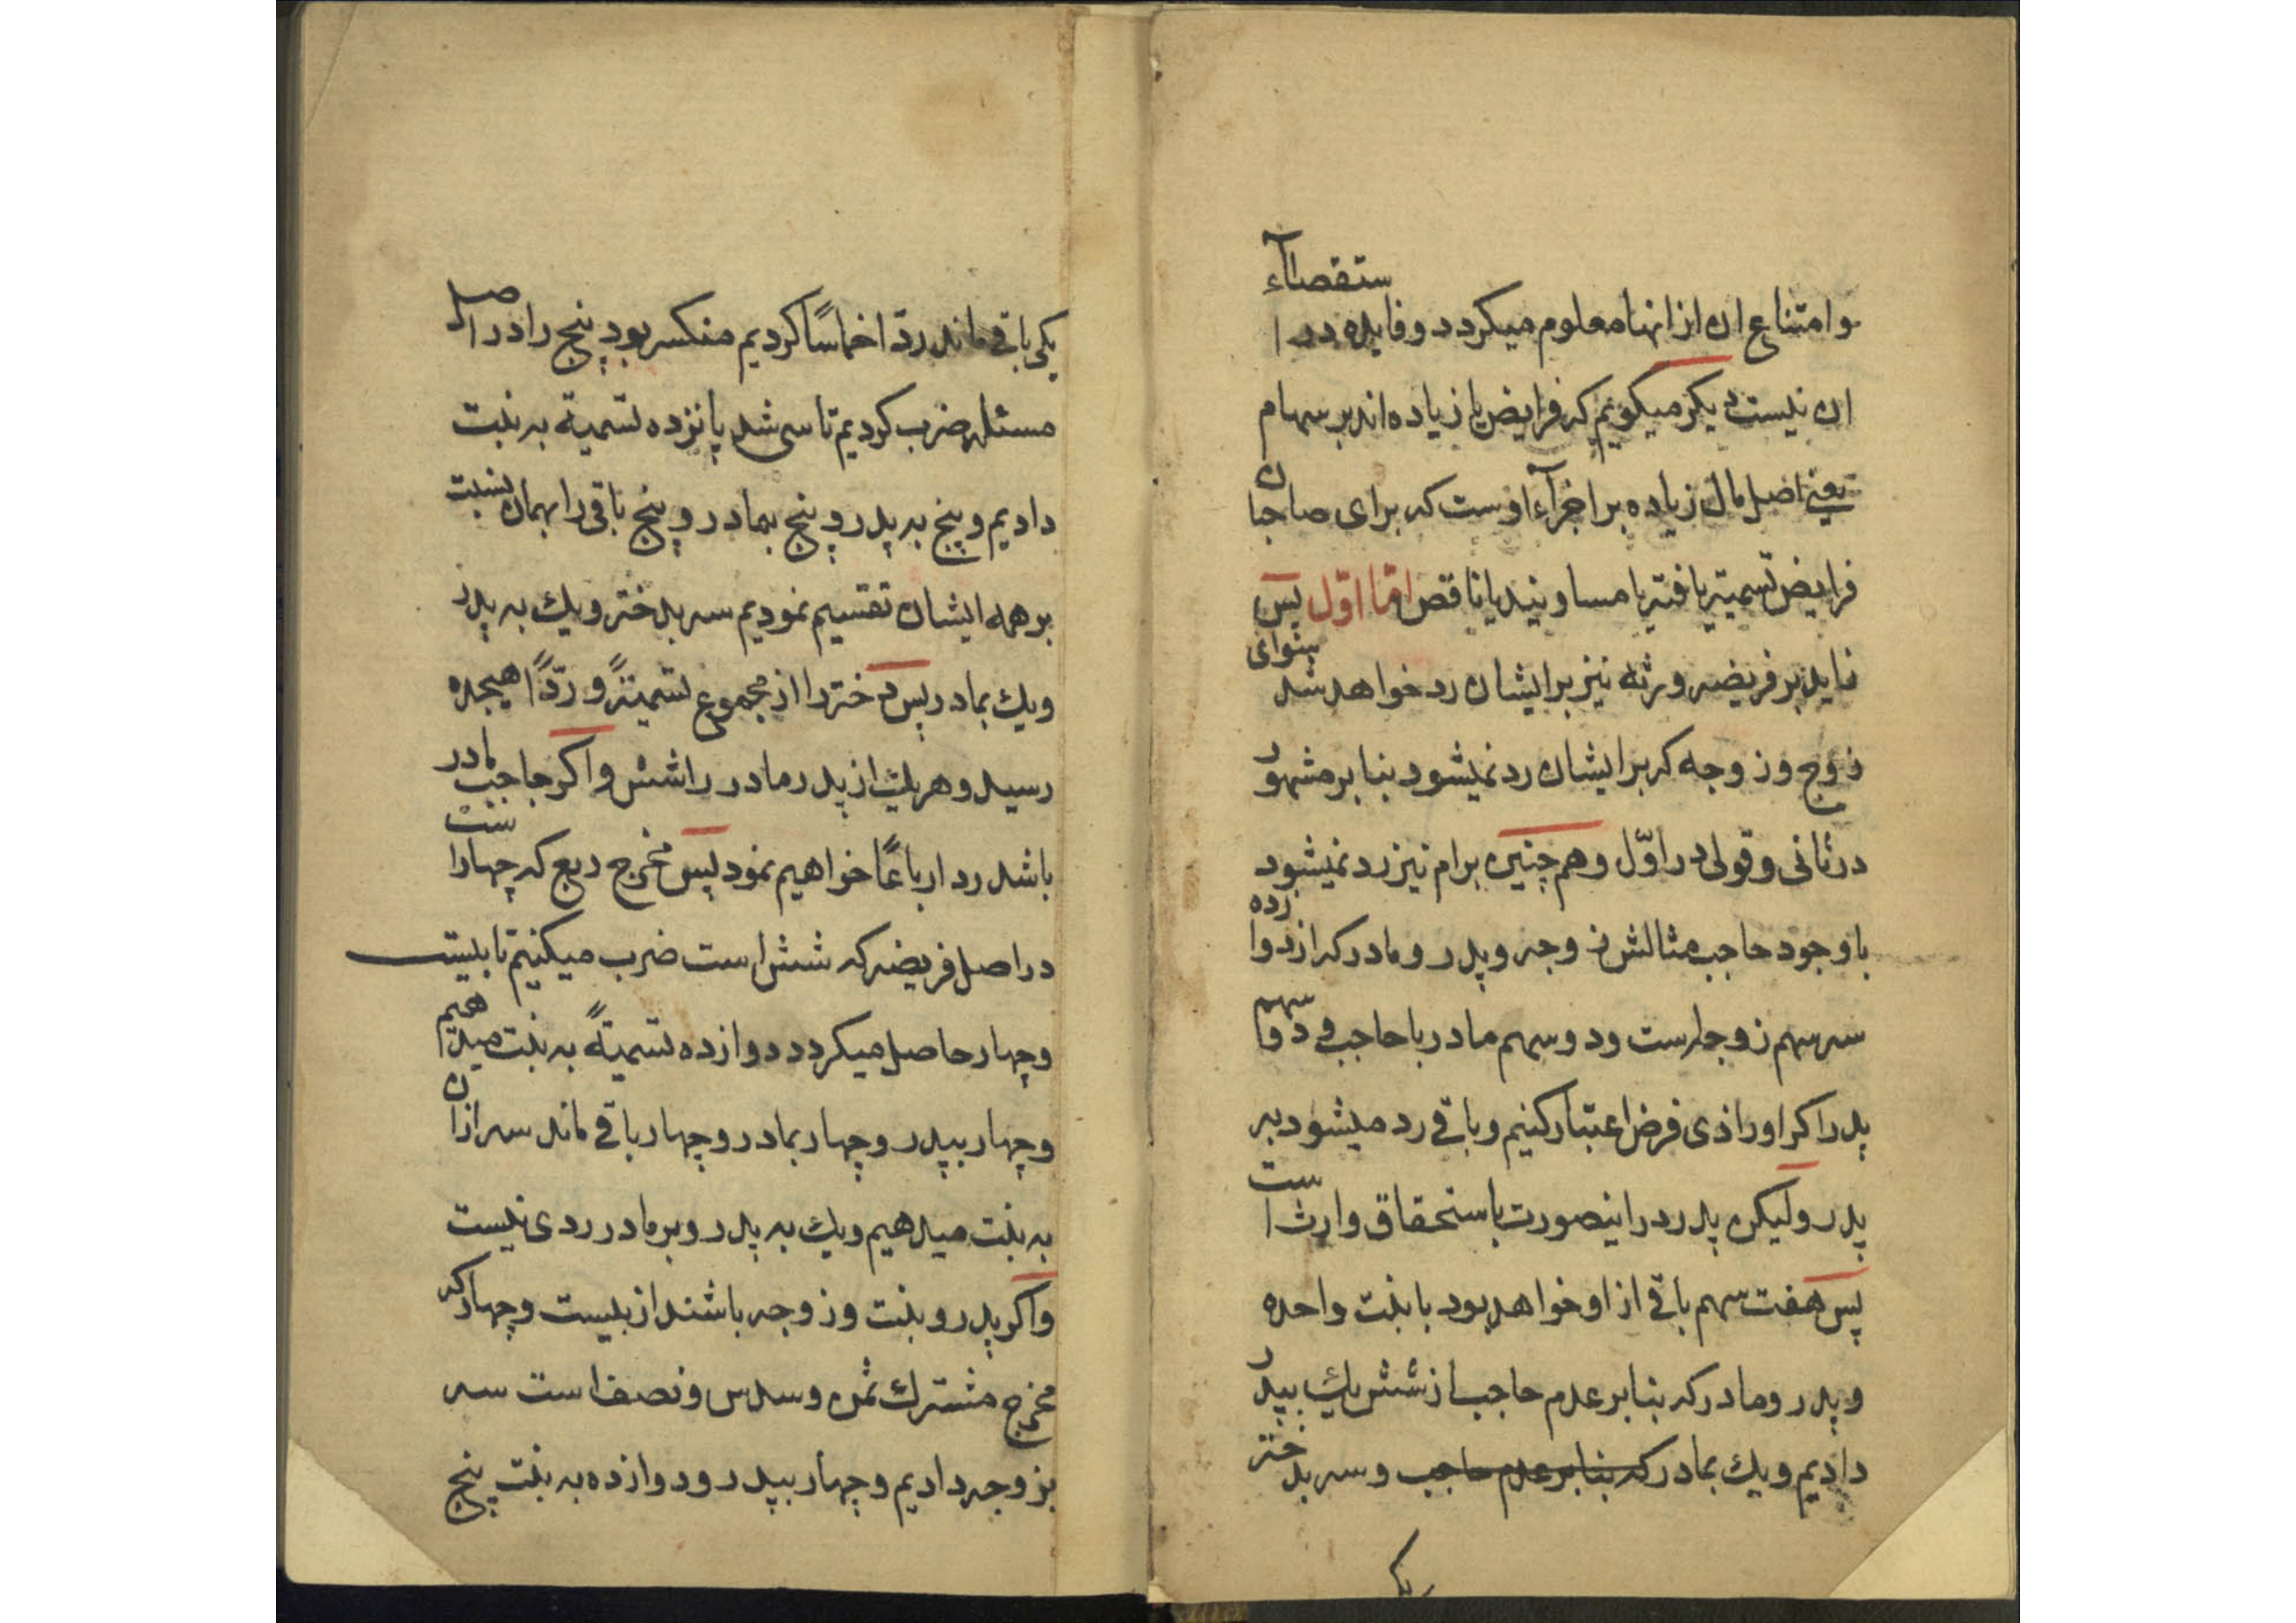 و امتناع ان از انها معلوم میکردد و فایده در استقصاآء
ان نیست دیکر میکوئیم که فرایض یا زیاده اند بر سهام
یعنی اصل مال زیاده بر اجزآء اوست که برای صاحبان
فرایض تسمیته یافته یا مساویند یا ناقص اما اوّل پس
زاید بر فریضه ورثه نیز بر ایشان رد خواهد شد سوای
زوج و زوجه که بر ایشان رد نمیشود بنا بر مشهور
در ثانی و قولی در اوّل و هم چنین بر ام نیز رد نمیشود
با وجود حاجب مثالش زوجه و پدر و مادر که از دوازده
سه سهم زوجه است و دو سهم مادر با حاجب و دو سهم
پدر اکر او را ذی فرض اعتبار کنیم و باقی رد میشود به
پدر و لیکن پدر در اینصورت باستحقاق وارث است
پس هفت سهم باقی از او خواهد بود با بنت واحده
و پدر و مادر که بنا بر عدم حاجب از شش یك بپدر
دادیم و یك بمادر که بنا بر عدم حاجب و سه بدختر
یکی
یکی باقی ماند رد اخماسًا کردیم منکسر بود پنج را در اصل
مسئله ضرب کردیم تا سی شد پانزده تسمیة به بنت
دادیم و پنج به پدر و پنج بمادر و پنج باقی را بهمان نسبت
بر همه ایشان تقسیم نمودیم سه بدختر و یك به پدر
و یك بمادر پس دختر را از مجموع تسمیتةً و ردًّا هیجده
رسید و هر یك از پدر مادر را شش و اکر حاجب مادر
باشد رد ارباعًا خواهیم نمود پس مخرج ربع که چهار است
در اصل فریضه که شش است ضرب میکنیم تا بیست
و چهار حاصل میکردد دوازده تسمیتةً به بنت میدهیم
و چهار بپدر و چهار بمادر و چهار باقی ماند سه از ان
به بنت میدهیم و یك به پدر و بر مادر ردی نیست
و اکر پدر و بنت و زوجه باشند از بیست و چهار که
مخرج مشترك ثمن و سدس و نصف است سه
بزوجه دادیم و چهار بپدر و دوازده به بنت پنج